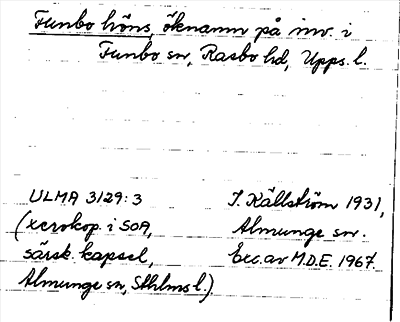 Funbo höns, öknamn på inv. i
Funbo sn, Rasbo hd, Upps. l.
ULMA 3129:3
(xerokop. i SOA,
särsk. kapsel,
Almunge sn, Sthlms l.)
J. Källström 1931,
Almunge sn.
Exc. av M.D.E. 1967